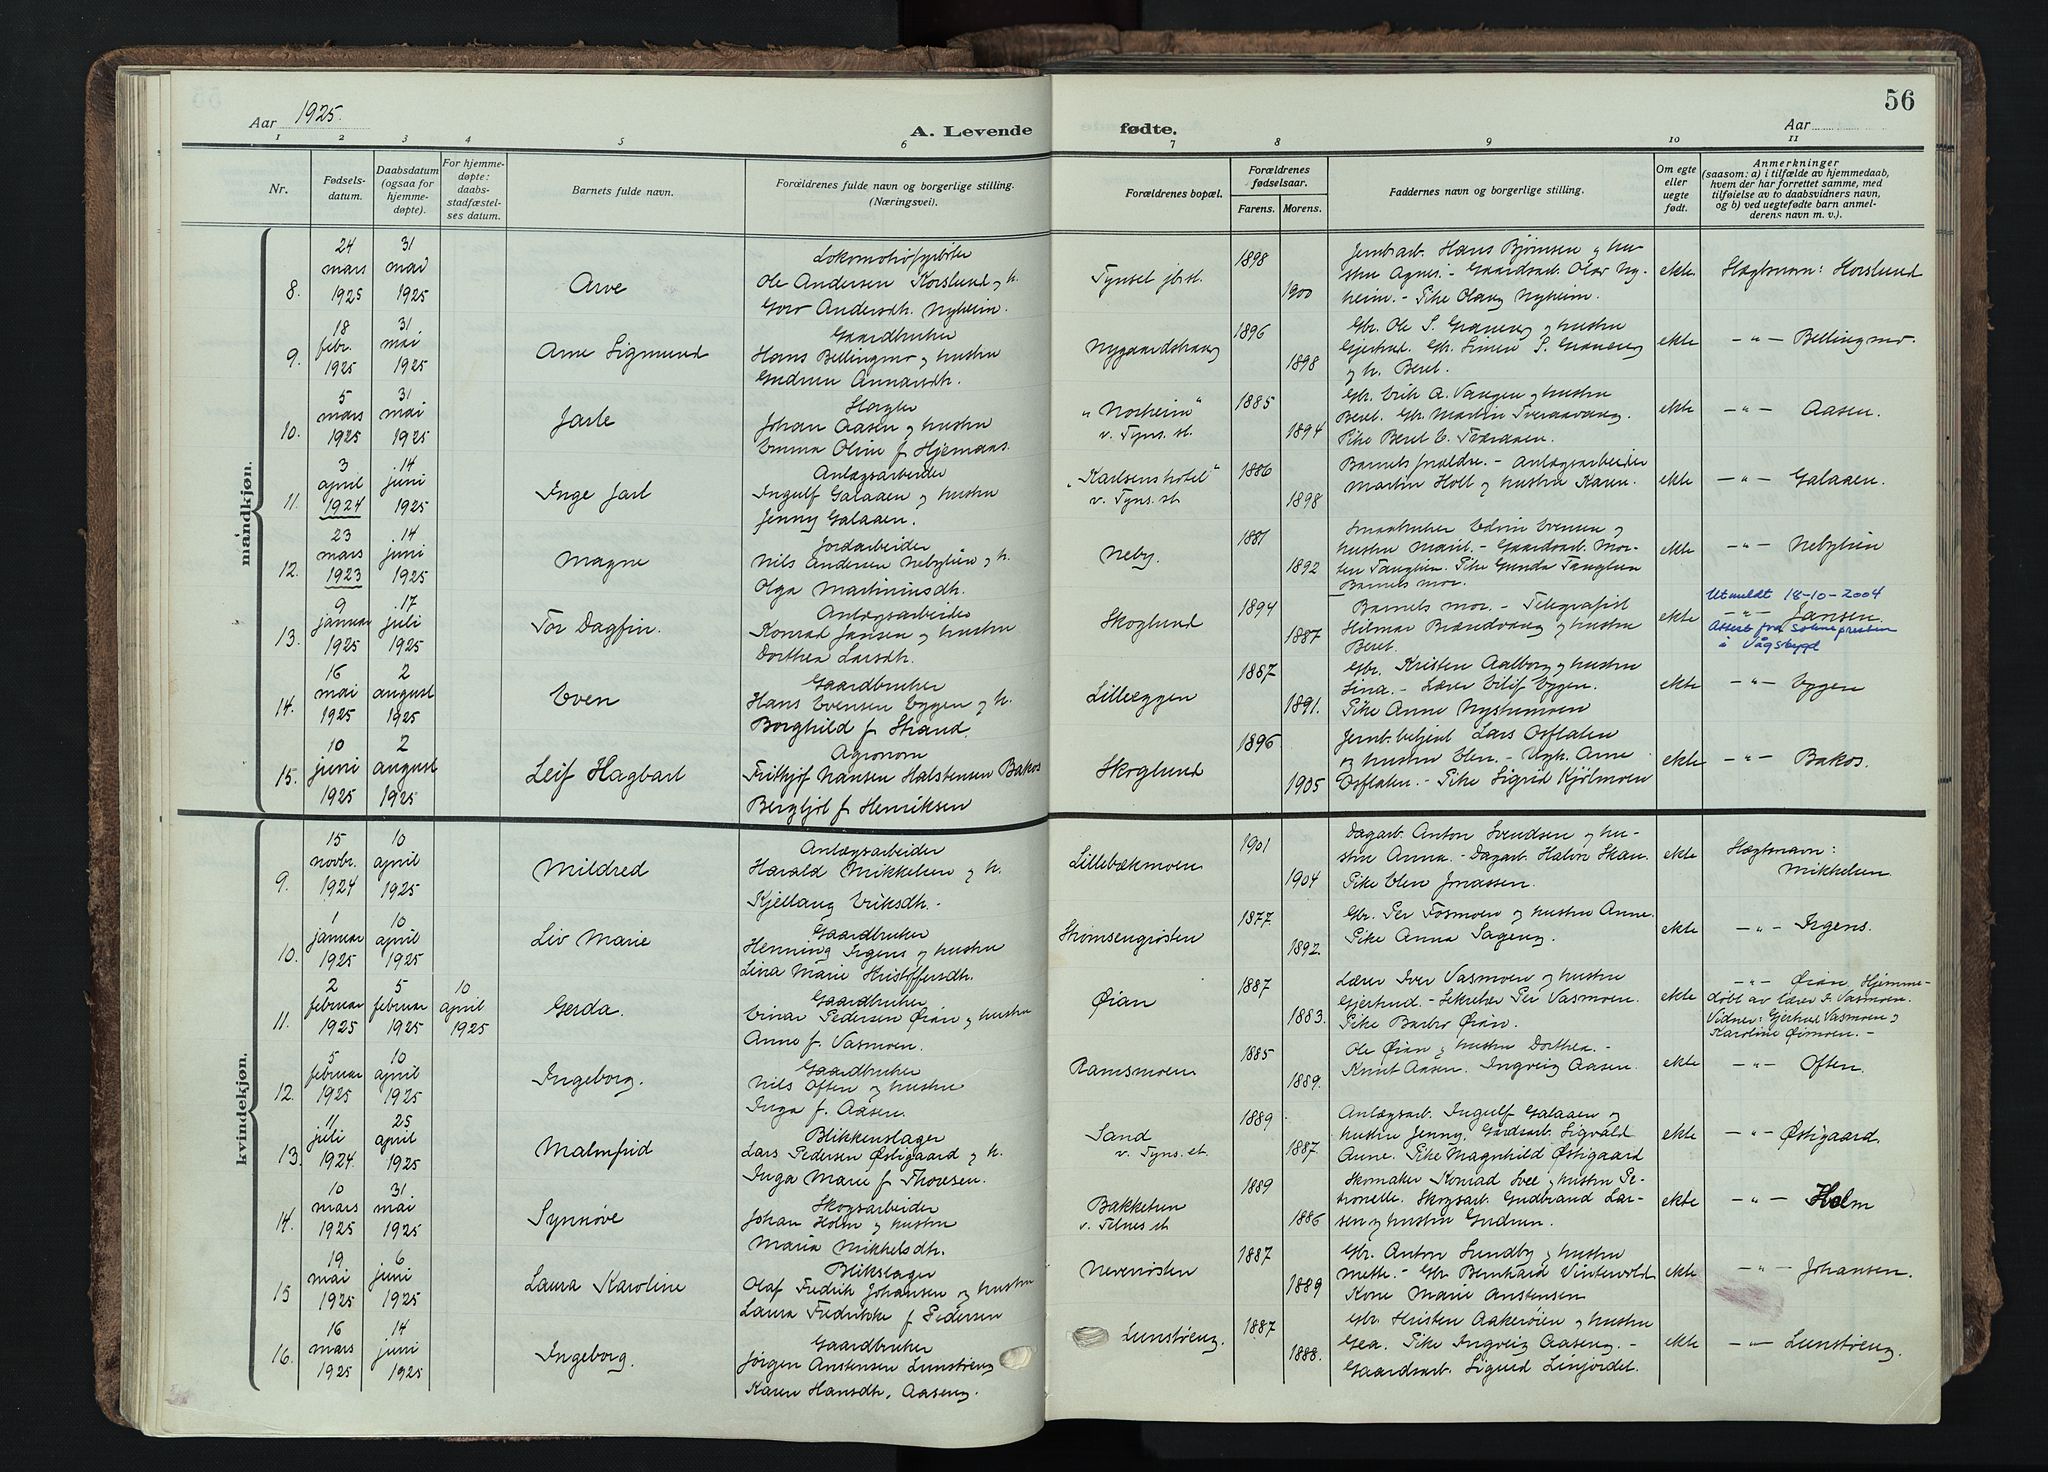 Aar 1925.
A. Levende
fødte.
Aar
56
1 2 3 4 5 6 7 8 9 10 11
Nr.
Fødsels-
datum.
Daabsdatum
(ogsaa for
hjemme-
døpte).
For hjemme-
døpte:
daabs-
stadfæstel-
ses datum.
Barnets fulde navn.
Forældrenes fulde navn og borgerlige stilling.
(Næringsvei).
Forældrenes bopæl.
Forældrenes
fødselsaar.
Farens. Morens.
Faddernes navn og borgerlige stilling.
Om egte
eller
uegte
født.
Anmerkninger
(saasom: a) i tilfælde av hjemmedaab,
hvem der har forrettet samme, med
tilføielse av to daabsvidners navn,
og b) ved uegtefødte barn anmel-
derens navn m. v.).
mandkjøn.
8.
24
mars
1925
31
mai
1925
Arve
Ole Andersen Korslund og h.
Goro Andersdh. Nyheim.
Tynset jb.st.
1898
1900
Jernb.arb. Hans Bjørnsen og hu-
stru Agnes. - Gaardsarb. Olav Ny-
heim. - Pike Olaug Nyheim.
ekte
Slægtsnavn: Korslund
9.
18
febr.
1925
31
mai
1925
Arne Sigmund
Gaardbruker
Hans Bellingmo og hustru
Gudrun Annarsdh.
Nygaardshaug
1896
1898
og h. Beret.
ekte
-"- Bellingmo.
10.
5
mars
1925
31
mai
1925
Jarle
Johan Aasen og hustru
Emma Oline f. Hjemaas.
"Norheim"
v. Tyns. st.
1885
1894
Gbr. Erik A. Vangen og hustru
Beret. Gb. Martin Tveraavang.
Pike Beret E. Tveraaen.
ekte
-"- Aasen.
11.
3
april
1924
14
juni
1925
Inge Jarl
Anlægsarbeider
Ingulf Galaaen og hustru
Jenny Galaaen.
"Karlsenshotel"
v. Tyns. st.
1886
1898
Barnets forældre. - Anlægsarbeider
Martin Holt og hustru Karen.
ekte
-"- Galaaen.
12.
23
mars
1923
14
juni
1925
Magne
Jordarbeider
Nils Andersen Nebylien og h.
Olga Martiniusdh.
Neby.
1881
1892
Smaabruker Edvin Evensen og
hustru Marit. - Gaardsarb. Mor-
ten Tanglien. Pike Gunda Tanglien
Barnets mor.
ekte
-"- Nebylien
13.
9
januar
1925
17
juli
1925
Tor Dagfin.
Anlægsarbeider
Konrad Jansen og hustru
Dorthea Larsdh.
Skoglund
1894
1887
Barnets mor. - Telegrafist
Hilmar Brændvang og hustru
Beret.
ekte
Utmeldt 18-10-2004
-"- Jansen.
Attest fra Sokneprесten
i Vågsbygd
14.
16
mai
1925
2
august
1925
Even
Gaardbruker
Hans Evensen Eggen og h.
Borghild f. Strand.
Lilleeggen
1887
1891.
Gbr. Kristen Aalborg og hustru
Lina. - Lærer Eilif Eggen.
Pike Anne Nystumoen
ekte
-"- Eggen
15.
10
juni
1925
2
august
1925
Leif Hagbart
Agronom
Frithjof Nansen Halstensen Bakos
Bergljot f. Henriksen
Skoglund
1896
1905
Jernb.betjent Lars Osflaten
og hustru Elen. - Ugk. Anne
Osflaten. - Pike Sigrid Kjølmoen
ekte
-"- Bakos.
kvindekjøn.
9.
15
novbr.
1924
10
april
1925
Mildred
Anlægsarbeider
Harald Mikkelsen og h.
Kjellaug Eriksdh. -
Lillebækmoen
1901
1904
Dagarb. Anton Svendsen og hu-
stru Anna. - Dagarb. Halvor Skau.
Pike Elen Jonassen.
ekte
Slægtsnavn:
Mikkelsen.
10.
1
januar
1925
10
april
1925
Liv Marie
Gaardbruker
Henning Irgens og hustru
Lina Marie Kristoffersdh.
Strømsengrøsten
1877
1892.
Gbr. Per Fosmoen og hustru Anne.
Pike Anna Sageng.
ekte
-"- Irgens.
11.
2
februar
1925
5
februar
1925
10
april
1925
Gerda.
Gaardbruker
Einar Pedersen Øian og hustru
Anne f. Vasmoen.
Øian
1887
1883.
Lærer Iver Vasmoen og hustru
Gjertrud. - Sekretær Per Vasmoen.
Pike Barbro Øian.
ekte
-"- Øian. Hjemme-
døbt av lærer I. Vasmoen.
Vidner: Gjertrud Vasmoen og
Karoline Øimoen. -
12.
5
februar
1925
10
april
1925
Ingeborg.
Gaardbruker
Nils Often og hustru
Inga f. Aasen.
Ramsmoen
1885
1889.
Ole Øian og hustru Dorthea. -
Knut Aasen. Ingveig Aasen.
ekte
-"- Often.
13.
11
juli
1924.
25
april
1925
Malmfrid
Blikkenslager
Lars Pedersen Østigaard og h.
Inga Marie f. Thoresen.
Sand
v. Tyns. st.
1889
1887.
Anlægsarb. Ingulf Galaaen og
hustru Jenny. Gaardsarb. Sigvald
Anne. Pike Magnhild Østigaard
ekte
-"- Østigaard.
14.
10
mars
1925
31
mai
1925
Synnøve
Skogsarbeider
Johan Holm og hustru
Maria Mikkelsdh.
Bakkelien
v. Telnes st.
1889
1886
Skomaker Konrad Svee og hustru Pe-
tronelle. Skogsarb. Gudbrand Lar-
sen og hustru Gudrun.
ekte
-"- Holm
15
19
mai
1925
6
juni
1925
Laura Karoline
Blikslager
Olaf Fredrik Johansen og hustru
Laura Fredrikke f. Pedersen
Neverøsten
1887
1889
Gbr. Anton Lundby og hustru
Mette. - Gbr Bernhard Vintervold
Kone Marie Anstensen
ekte
-"- Johansen.
16.
16
mars
1925
14
juni
1925
Ingeborg.
Gaardbruker
Jørgen Anstensen Lunstrøeng
Karen Hansdh. Aaseng.
Lunstrøeng.
1887
1888.
Gbr. Kristen Aakerøien og hustru
Gea. Pike Ingveig Aaseng. -
Gaardsarb. Sigurd Linjordet.
ekte
-"- Lunstrøeng.